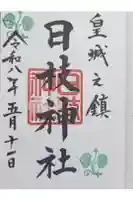 皇城之鎮
日枝神社
令和八年五月十一日